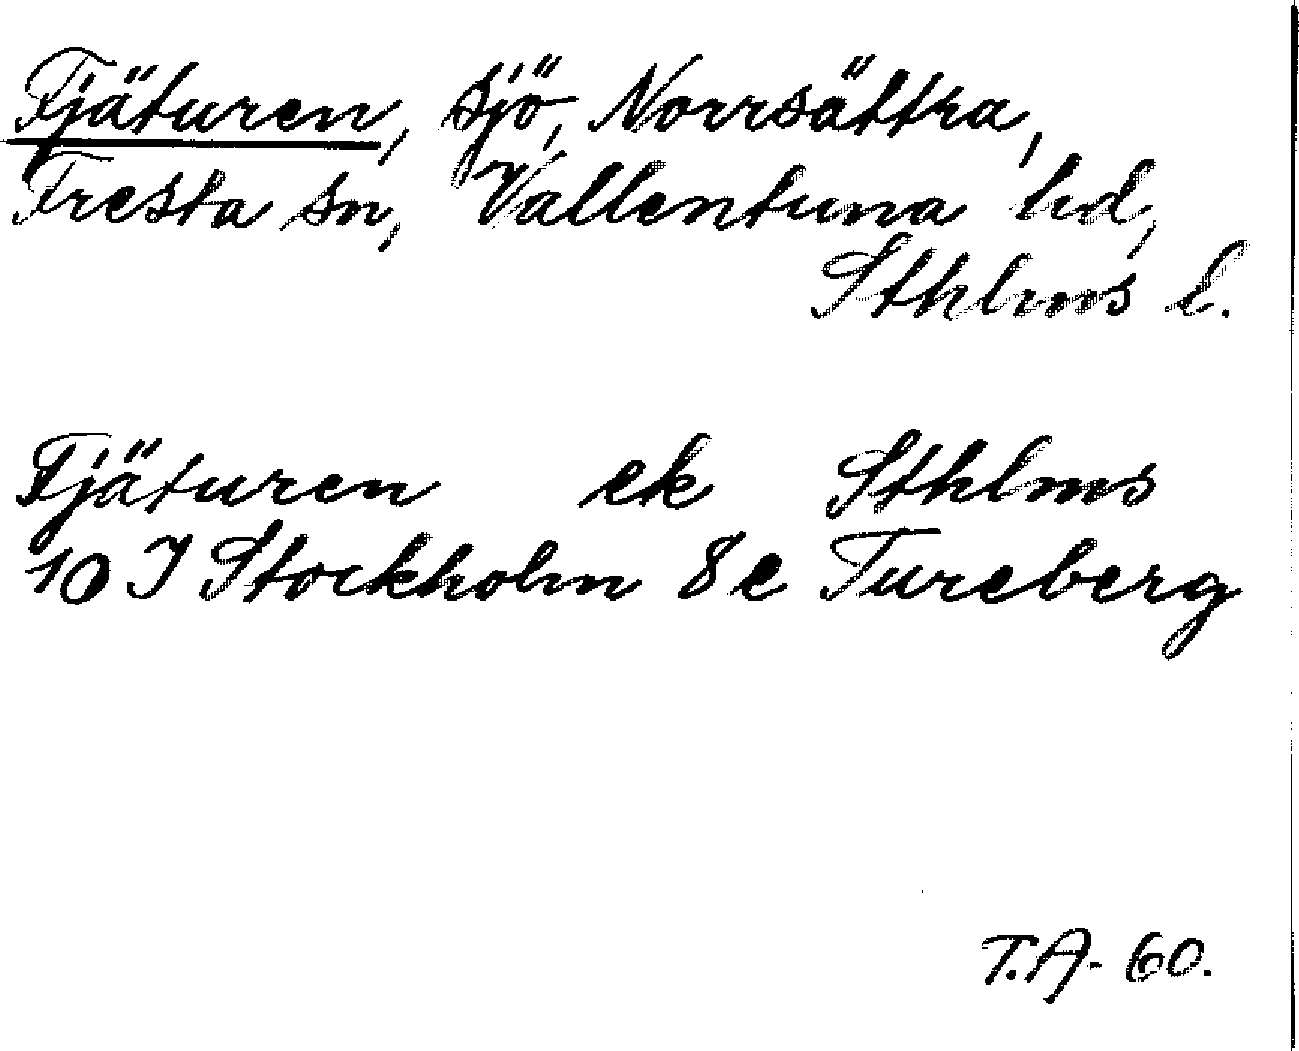 Fjäturen, sjö, Norrsättra,
Fresta sn, Vallentuna hd,
Sthlms l.
Fjäturen ek Sthlms
10 I Stockholm 8e Tureberg
T.A. 60.